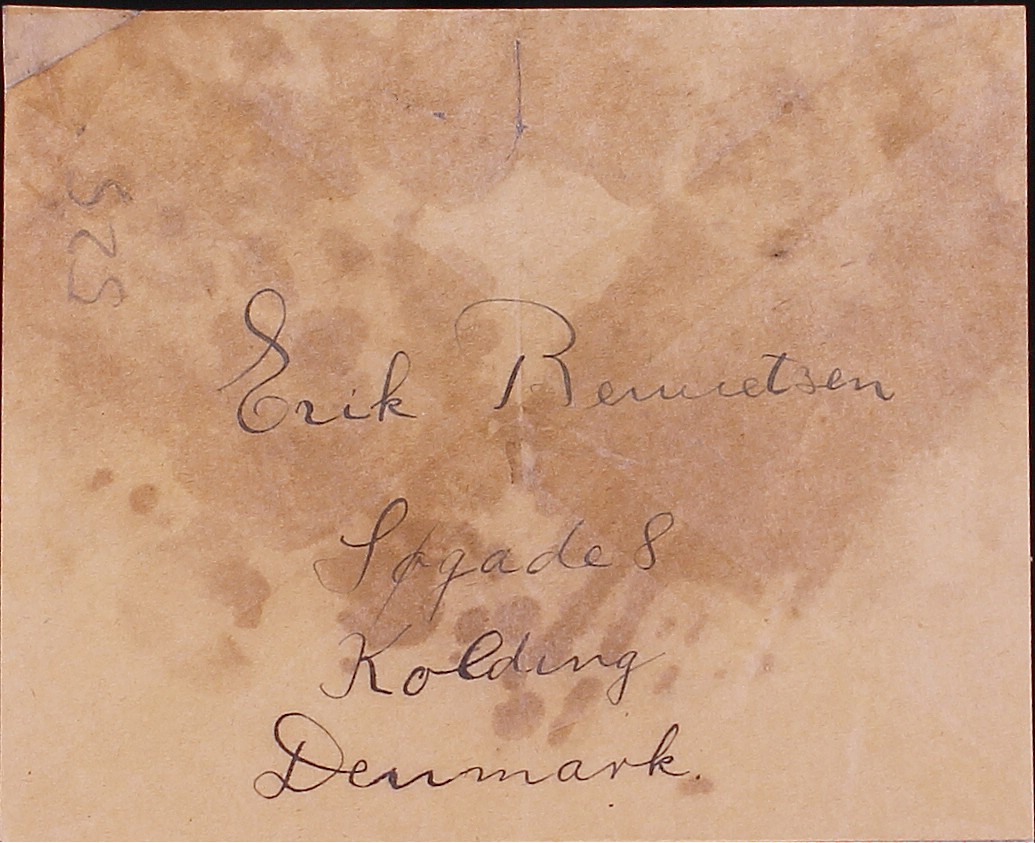 525
Erik
Søgade 8
Kolding
Denmark.